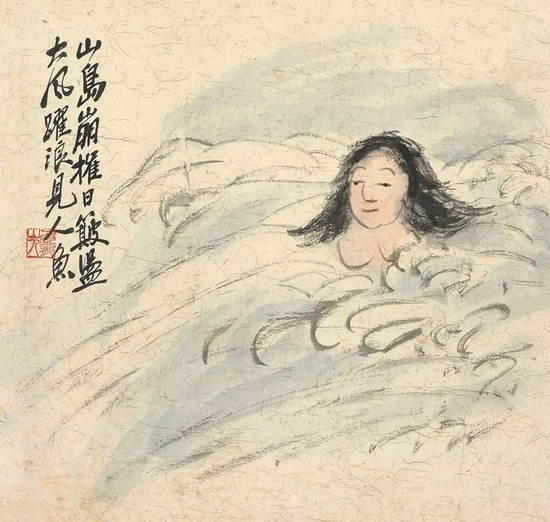 山島崩摧日簸盪
大風躍浪見人魚